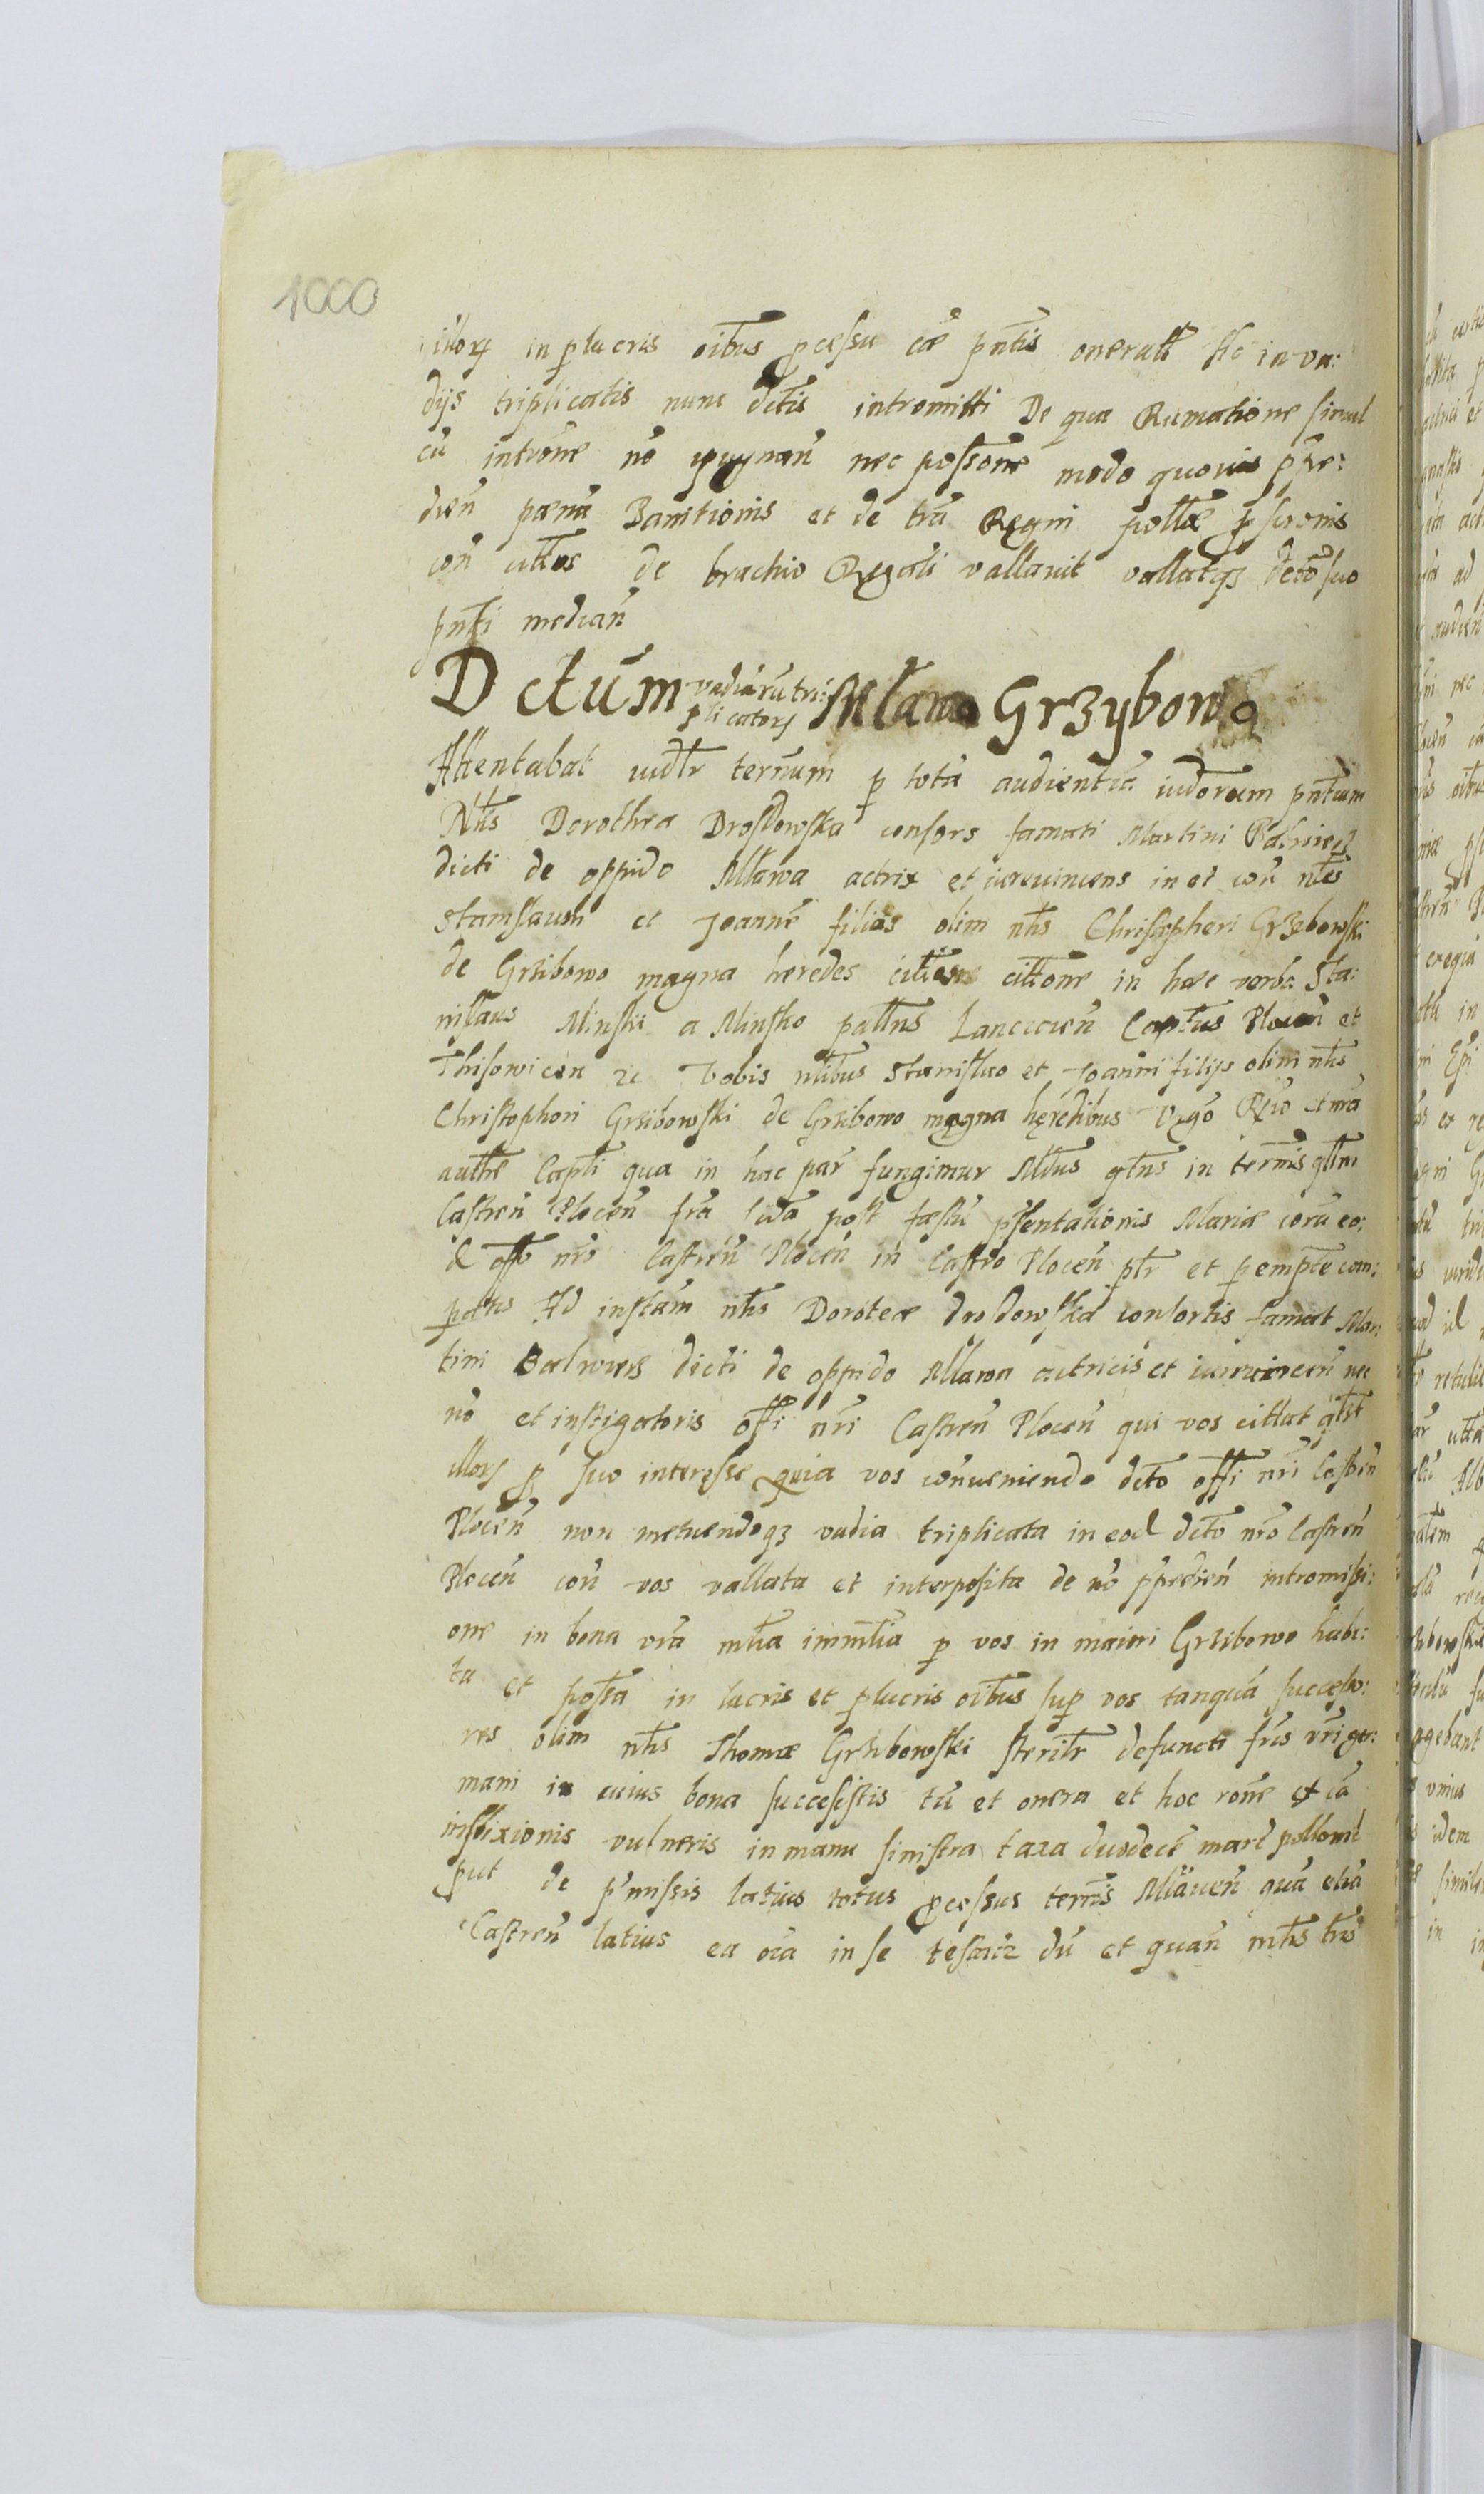 1000
illorum in plucris oibus pcessu cae pntis oneratt sic in va:
dijs triplicatis nunc dctis intromitti De qua Rumatione simul
cu introne no pugnan nec possone modo quovis ppe:
dien paena Banitionis et de tra Regni pollae pscronis
con cittos de brachio Regali vallavit vallatqz dcto suo
pnti median
Dctum vadiaru tri:
plicatorz Mlawa Grzybowo
Attentabat iudlr ternum p tota audientia iudorum pntium
Nlis Dorothea Drosdowska consors famati Martini Balwierz
dicti de oppido Mlawa actrix et iurevincens in et con nles
Stanislaum et Joanne filios olim nlis Christopheri Grzebowski
de Grzibowo magna heredes cittone in haec verba Sta:
nislaus Minski a Minsko pallnus Lancicien Captus Plocen et
Thisowicen zc Vobis nlibus Stanislao et Joanni filijs olim nlis
Christophori Grzibowski de Grzibowo magna heredibus Vigo Rgio et nra
authe Capli qua in hac par fungimur Mdus qtnus in termis qllm
Castren Plocen fra 2da post faestu psentationis Mariae cora eo:
d offo nro Castren Plocen in Castro Plocen ptr et pempte com:
patis Ad instam nlis Doroteae drosdowska consortis famat Mar
tini Balwiers dicti de oppido Mlawa actricis et iurevincen nec
no et instigatoris offi nri Castren Plocen qui vos cittat qtnt
illorz p suo interesse quia vos conveniendo dcto offi nri Castren
Plocen non metuendoqz vadia triplicata in eod dcto nro Castren
Plocen con vos vallata et interposita de no ppedien intromissi:
one in bona vra mlia immlia p vos in maiori Grzibowo habi:
ta et possa in lucris et plucris oibus sup vos tanqua successo:
res olim nlis Thomae Grzibowski sterilr defuncti fris vri ger:
mani in cuius bona successistis tu et onera et hoc rone et ca
inflixionis vulneris in manu sinistra taxa duodece marc pollomd
put de pmissis latius totus pcessus termis Mlaven qua etia
Castren latius ea oia in se testatz du et quan mlis tris